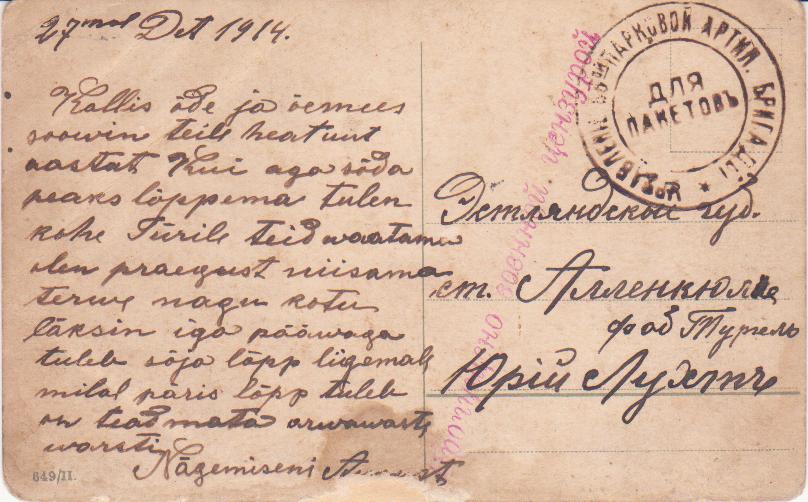 27mal Det 1914.
Kallis õde ja õemees
soowin teile heat uut
aastat Kui aga sõda
peaks lõppema tulen
kohe Türile teid waatama
olen praegust niisama
terwe nagu kotu
läksin iga pääwaga
tuleb sõja lõpp ligemale
milal päris lõpp tuleb
on teadmata arwawaste
warsti
Nägemiseni
649/II.
ПАРКОВОЙ АРТИЛ. БРИГАДЫ
УПРАВЛЕНІЕ
ДЛЯ
ПАКЕТОВЪ
военной цензурой
Эстляндской губ.
ст. Алленкюль
фаб Тургель
Юрій Лухтъ